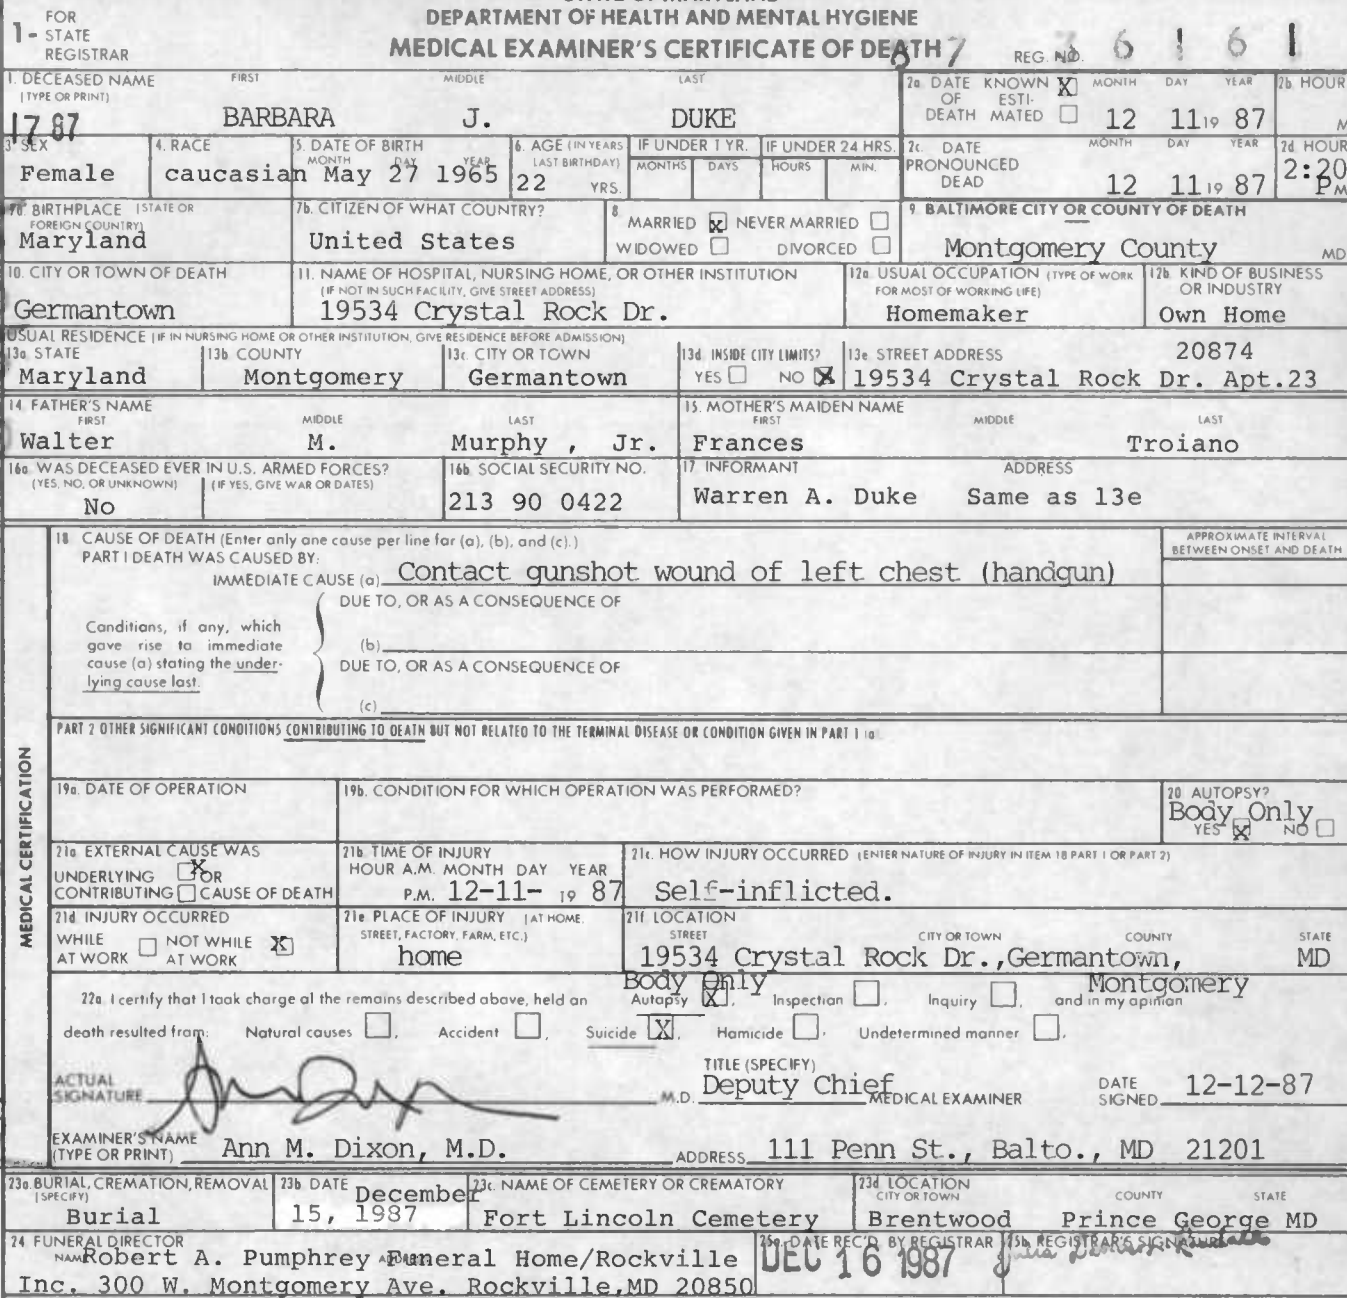 1- FOR STATE REGISTRAR
DEPARTMENT OF HEALTH AND MENTAL HYGIENE
MEDICAL EXAMINER'S CERTIFICATE OF DEATH
87 REG. NO. 36161
1. DECEASED NAME (TYPE OR PRINT) FIRST MIDDLE LAST
BARBARA J. DUKE
1787
2a DATE OF DEATH KNOWN X ESTIMATED MONTH DAY YEAR
12 11 19 87
2b HOUR M
3 SEX
Female
4. RACE
caucasian
5. DATE OF BIRTH MONTH DAY YEAR
May 27 1965
6. AGE (IN YEARS LAST BIRTHDAY)
22 YRS.
IF UNDER 1 YR. MONTHS DAYS
IF UNDER 24 HRS. HOURS MIN.
2c. DATE PRONOUNCED DEAD MONTH DAY YEAR
12 11 19 87
2d HOUR
2:20 PM
BIRTHPLACE (STATE OR FOREIGN COUNTRY)
Maryland
7b. CITIZEN OF WHAT COUNTRY?
United States
8. MARRIED X NEVER MARRIED
WIDOWED DIVORCED
9. BALTIMORE CITY OR COUNTY OF DEATH
Montgomery County MD
10. CITY OR TOWN OF DEATH
Germantown
11. NAME OF HOSPITAL, NURSING HOME, OR OTHER INSTITUTION
(IF NOT IN SUCH FACILITY, GIVE STREET ADDRESS)
19534 Crystal Rock Dr.
12a. USUAL OCCUPATION (TYPE OF WORK FOR MOST OF WORKING LIFE)
Homemaker
12b. KIND OF BUSINESS OR INDUSTRY
Own Home
USUAL RESIDENCE (IF IN NURSING HOME OR OTHER INSTITUTION, GIVE RESIDENCE BEFORE ADMISSION)
13a STATE
Maryland
13b COUNTY
Montgomery
13c. CITY OR TOWN
Germantown
13d. INSIDE CITY LIMITS?
YES NO X
13e STREET ADDRESS 20874
19534 Crystal Rock Dr. Apt.23
14. FATHER'S NAME FIRST MIDDLE LAST
Walter M. Murphy , Jr.
15. MOTHER'S MAIDEN NAME FIRST MIDDLE LAST
Frances Troiano
16a WAS DECEASED EVER IN U.S. ARMED FORCES?
(YES, NO, OR UNKNOWN) (IF YES, GIVE WAR OR DATES)
No
16b SOCIAL SECURITY NO.
213 90 0422
17 INFORMANT ADDRESS
Warren A. Duke Same as 13e
MEDICAL CERTIFICATION
18 CAUSE OF DEATH (Enter only one cause per line for (a), (b), and (c).)
PART I DEATH WAS CAUSED BY:
APPROXIMATE INTERVAL BETWEEN ONSET AND DEATH
IMMEDIATE CAUSE (a) Contact gunshot wound of left chest (handgun)
DUE TO, OR AS A CONSEQUENCE OF
Conditions, if any, which gave rise to immediate cause (a) stating the underlying cause last.
(b)
DUE TO, OR AS A CONSEQUENCE OF
(c)
PART 2 OTHER SIGNIFICANT CONDITIONS CONTRIBUTING TO DEATH BUT NOT RELATED TO THE TERMINAL DISEASE OR CONDITION GIVEN IN PART 1 (a)
19a. DATE OF OPERATION
19b. CONDITION FOR WHICH OPERATION WAS PERFORMED?
20 AUTOPSY?
Body Only
YES X NO
21a EXTERNAL CAUSE WAS
UNDERLYING X OR
CONTRIBUTING CAUSE OF DEATH
21b. TIME OF INJURY
HOUR A.M. MONTH DAY YEAR
P.M. 12-11- 19 87
21c. HOW INJURY OCCURRED (ENTER NATURE OF INJURY IN ITEM 18 PART 1 OR PART 2)
Self-inflicted.
21d INJURY OCCURRED
WHILE AT WORK NOT WHILE AT WORK X
21e PLACE OF INJURY (AT HOME, STREET, FACTORY, FARM, ETC.)
home
21f. LOCATION
STREET CITY OR TOWN COUNTY STATE
19534 Crystal Rock Dr.,Germantown, MD
Body Only Montgomery
22a. I certify that I took charge of the remains described above, held an Autopsy X, Inspection , Inquiry , and in my opinion
death resulted from: Natural causes , Accident , Suicide X, Homicide , Undetermined manner .
ACTUAL SIGNATURE M.D.
TITLE (SPECIFY)
Deputy Chief MEDICAL EXAMINER
DATE SIGNED 12-12-87
EXAMINER'S NAME (TYPE OR PRINT) Ann M. Dixon, M.D. ADDRESS 111 Penn St., Balto., MD 21201
23a. BURIAL, CREMATION, REMOVAL (SPECIFY)
Burial
23b. DATE
December 15, 1987
23c. NAME OF CEMETERY OR CREMATORY
Fort Lincoln Cemetery
23d LOCATION
CITY OR TOWN COUNTY STATE
Brentwood Prince George MD
24 FUNERAL DIRECTOR
NAME Robert A. Pumphrey Funeral Home/Rockville
Inc. 300 W. Montgomery Ave. Rockville,MD 20850
25a. DATE REC'D. BY REGISTRAR
DEC 16 1987
25b. REGISTRAR'S SIGNATURE